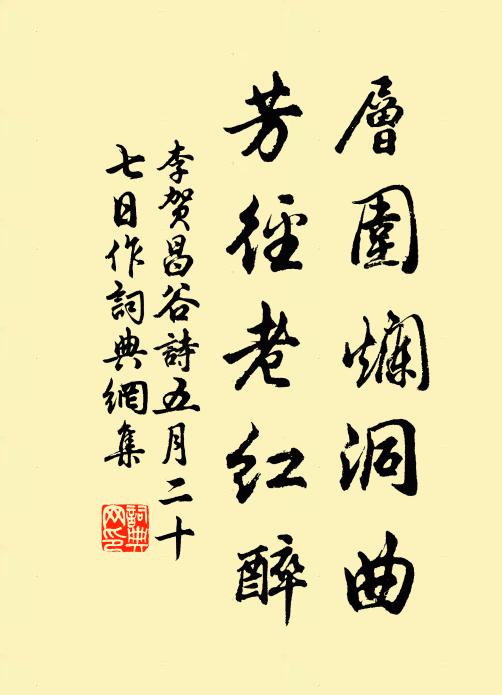 層圍爛洞曲
芳徑老紅醉
李賀昌谷詩五月二十
七日作詞典網集
詞典
网印